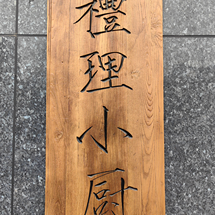 禮理小厨